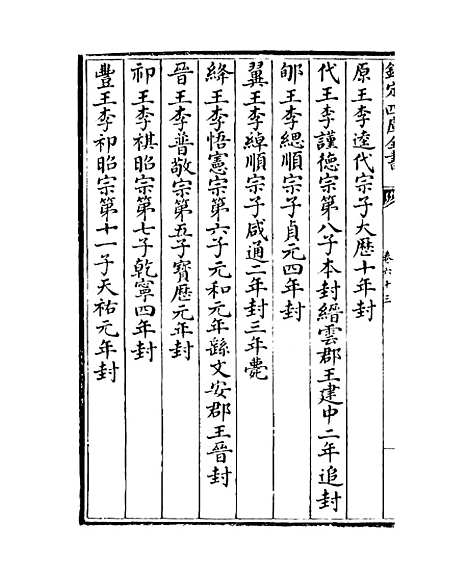 欽定四庫全書
卷六十三
原王李逵代宗子大歴十年封
代王李謹德宗第八子本封縉雲郡王建中二年追封
邭王李緦順宗子貞元四年封
翼王李綽順宗子咸通二年封三年薨
絳王李悟憲宗第六子元和元年繇文安郡王晉封
晉王李普敬宗第五子寳歴元年封
祁王李祺昭宗第七子乾寧四年封
豐王李祁昭宗第十一子天祐元年封